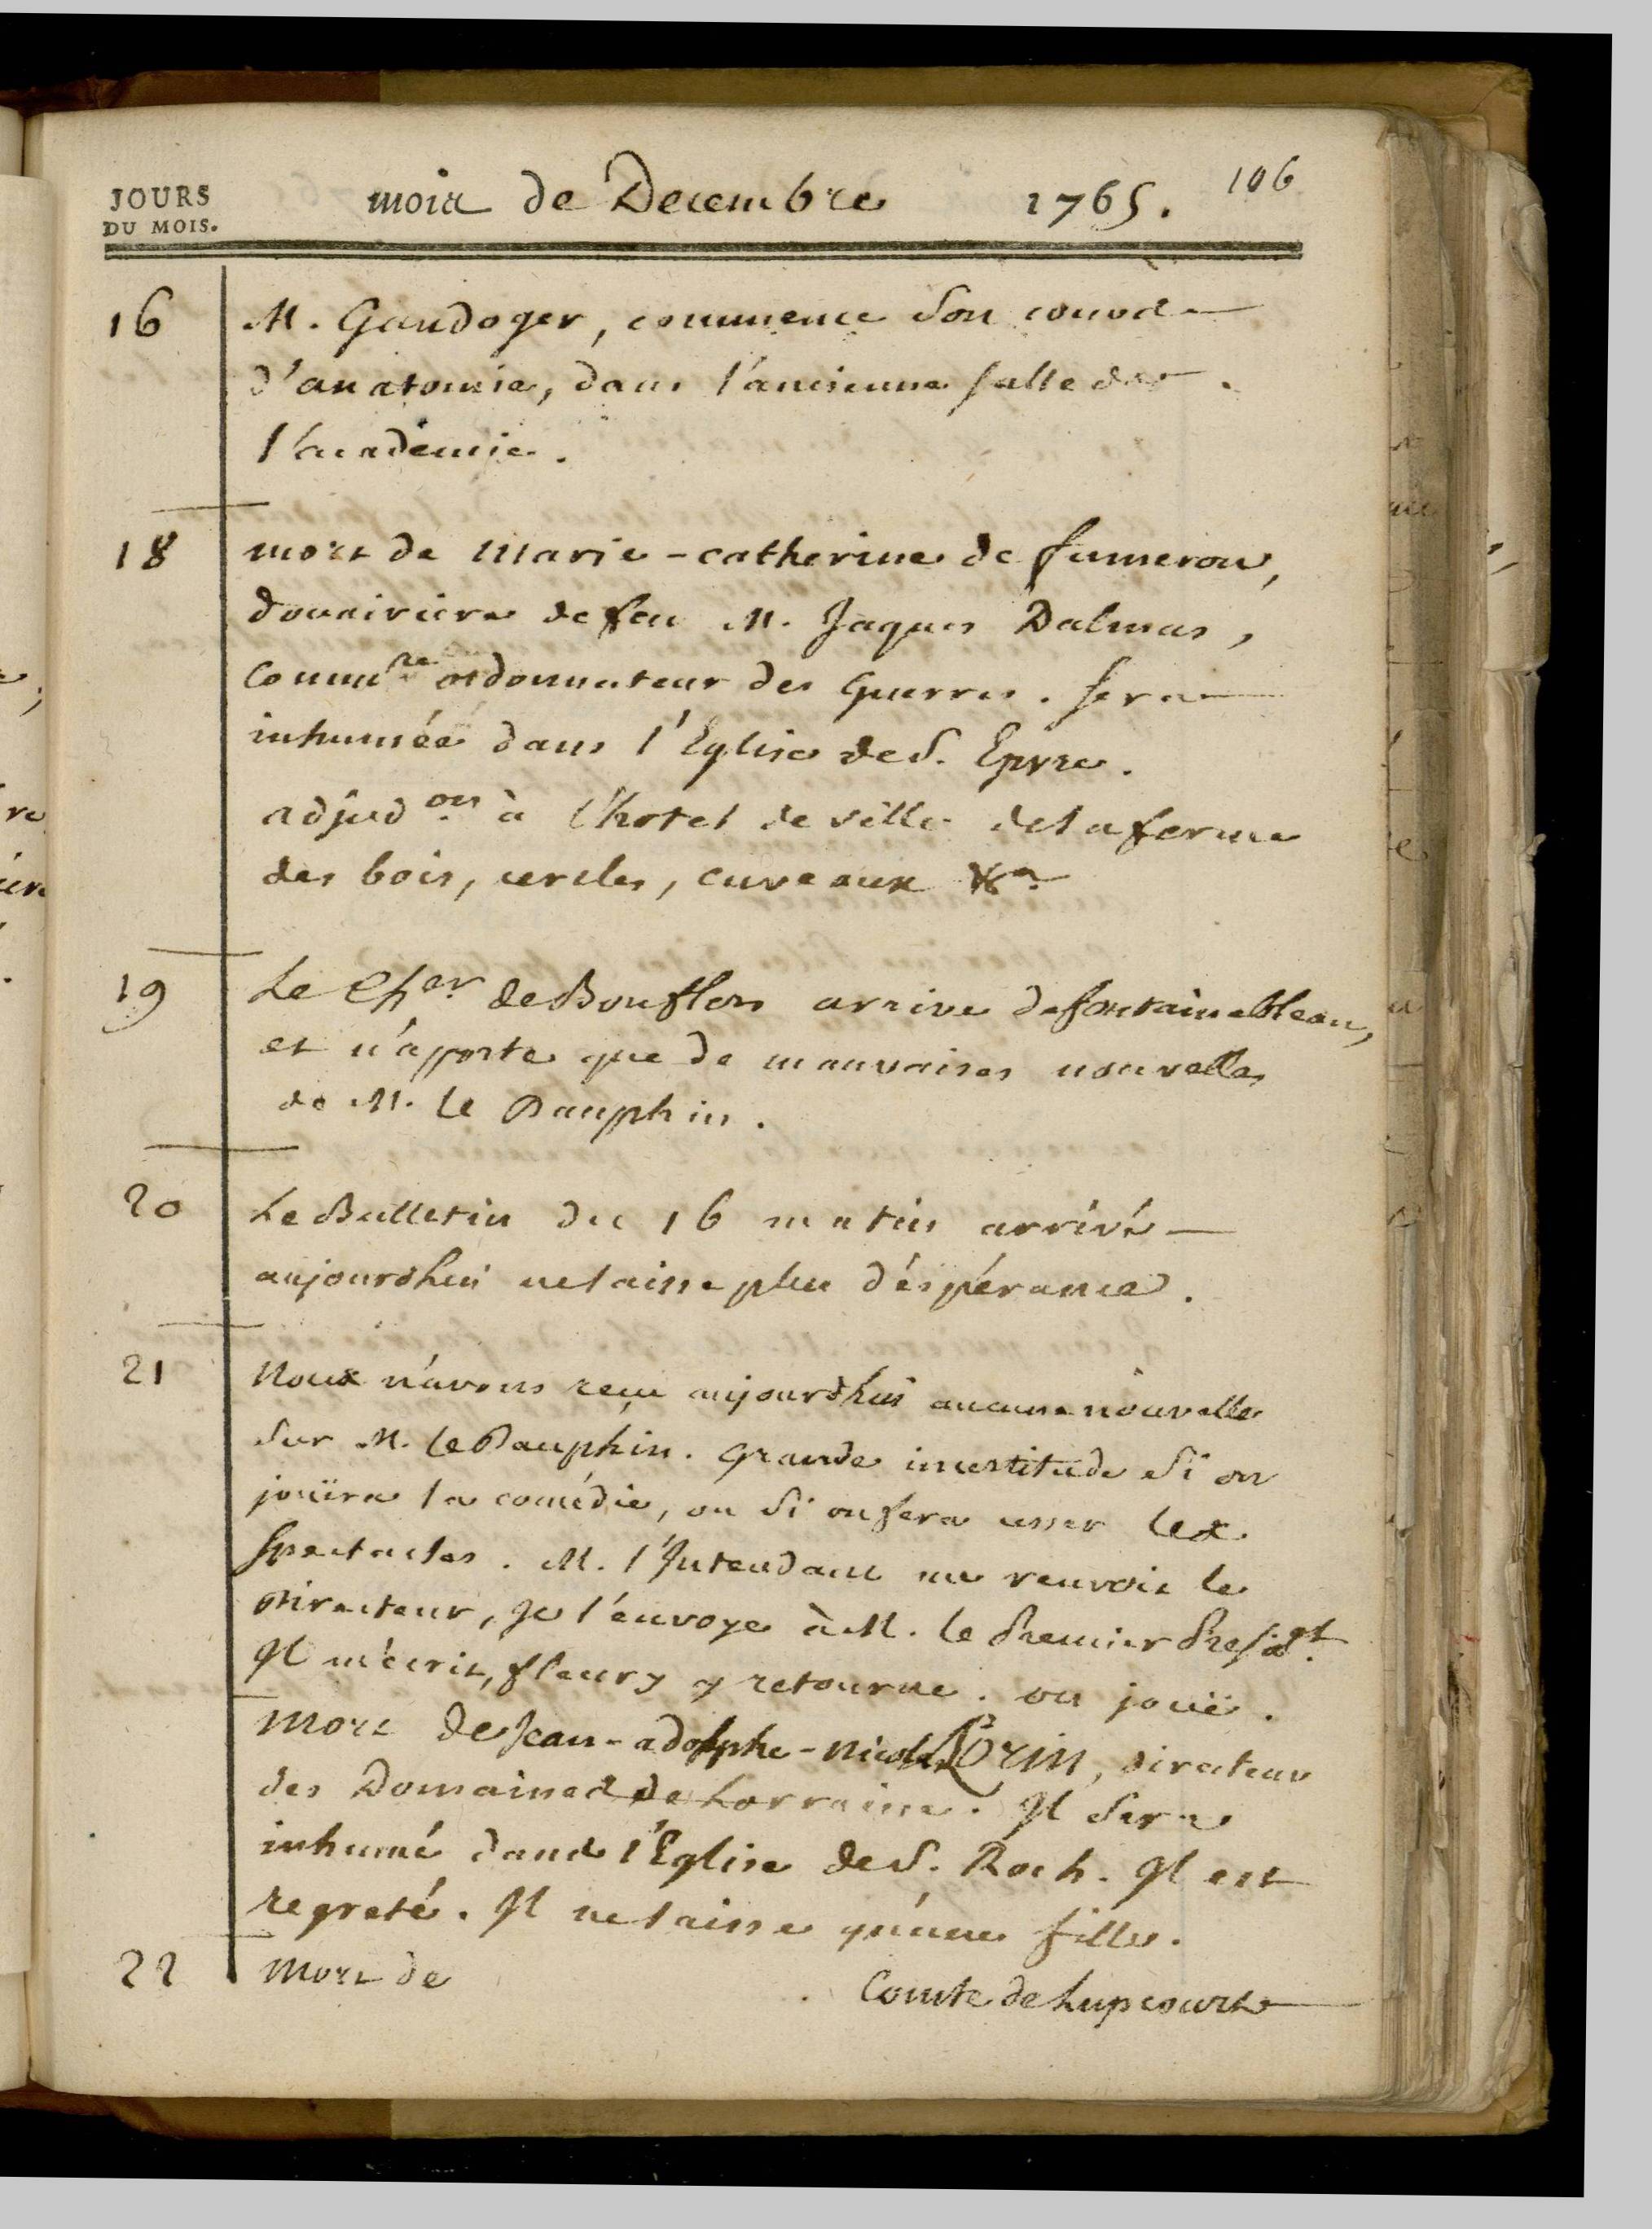 JOURS
DU MOIS.
mois de Decembre 1765. 106
16 M. Gandoger, commence son cours
d'anatomie, dans l'ancienne salle de
l'académie.
18 mort de Marie-catherine de fumeron,
douairiere de feu M. Jaques Dalmas,
Comm.re ordonnateur des Guerres. sera
inhumée dans l'Eglise de S. Epvre.
adjud.on à l'hotel de ville de la ferme
des bois, cercles, cuveaux &a.
19 Le Ch.er de Bouflers arrive de fontainebleau,
et n'apporte que de mauvaises nouvelles
de M. le Dauphin.
20 Le Bulletin du 16 matin arrivé
aujourdhui ne laisse plus d'éspérance.
21 Nous n'avons reçu aujourdhui aucune nouvelle
sur M. le Dauphin. Grande incertitude si on
joüira la comédie, ou si on fera cesser les
spectacles. M. l'Intendant me renvoie le
Directeur, Je l'envoye à M. le Premier Presid.nt
Il m'écrit, fleury y retourne. on joüe.
Mort de Jean-adolphe-Nicolas Lorin, directeur
des Domaines de Lorraine. Il sera
inhumé dans l'Eglise de S. Roch. Il est
regreté. Il ne laisse qu'une fille.
22 Mort de . Comte de Lupcourt